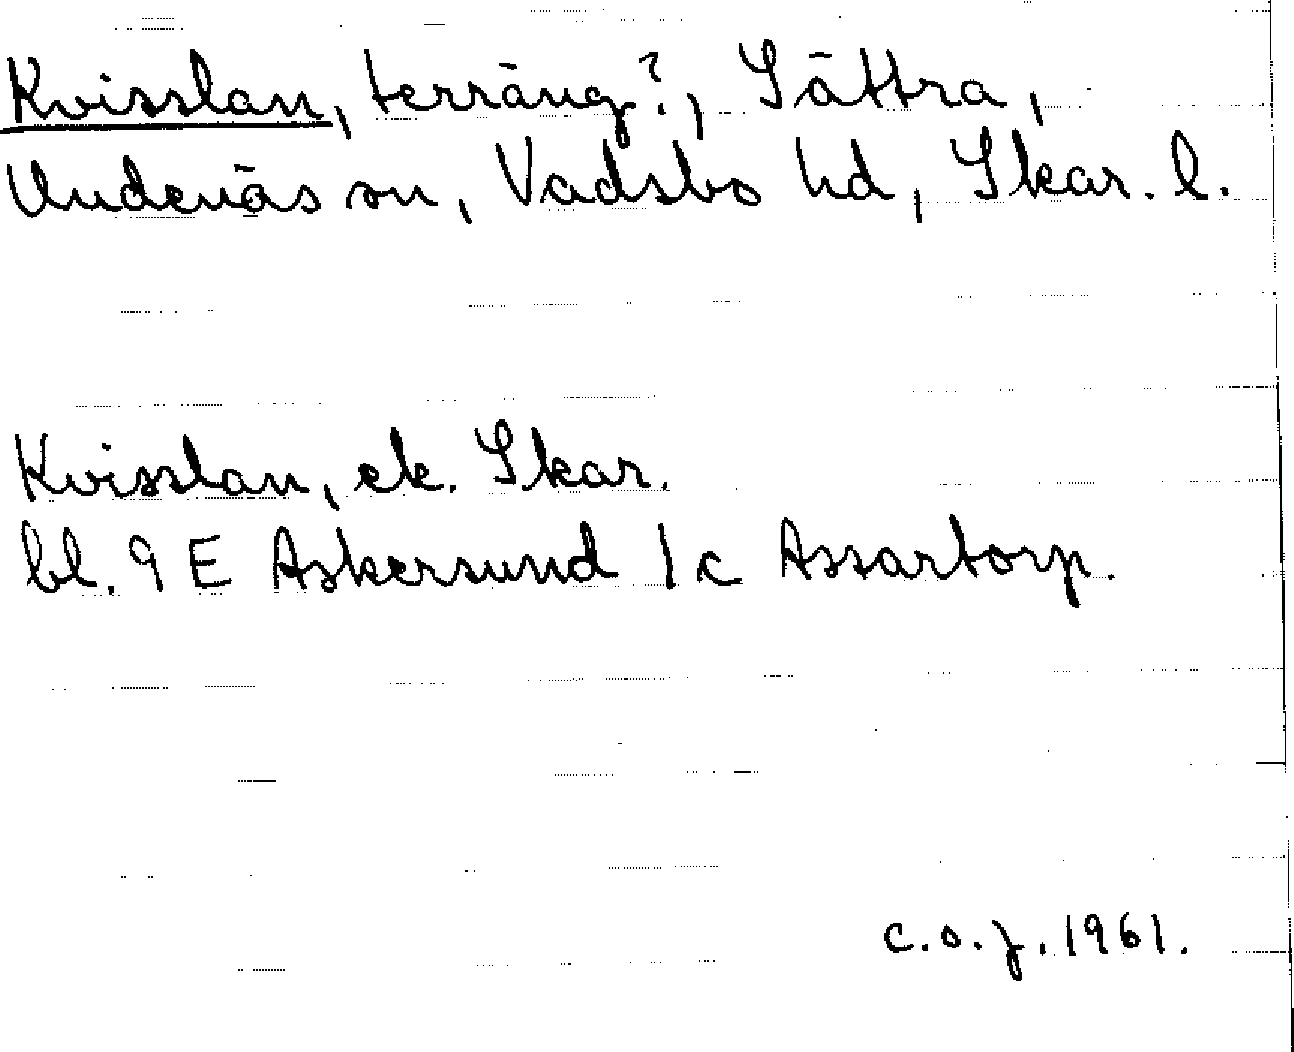 Kvisslan, terräng?, Sättra,
Undenäs sn, Vadsbo hd, Skar. l.
Kvisslan, ek. Skar.
bl. 9 E Askersund 1 c Assartorp.
C.O.J. 1961.